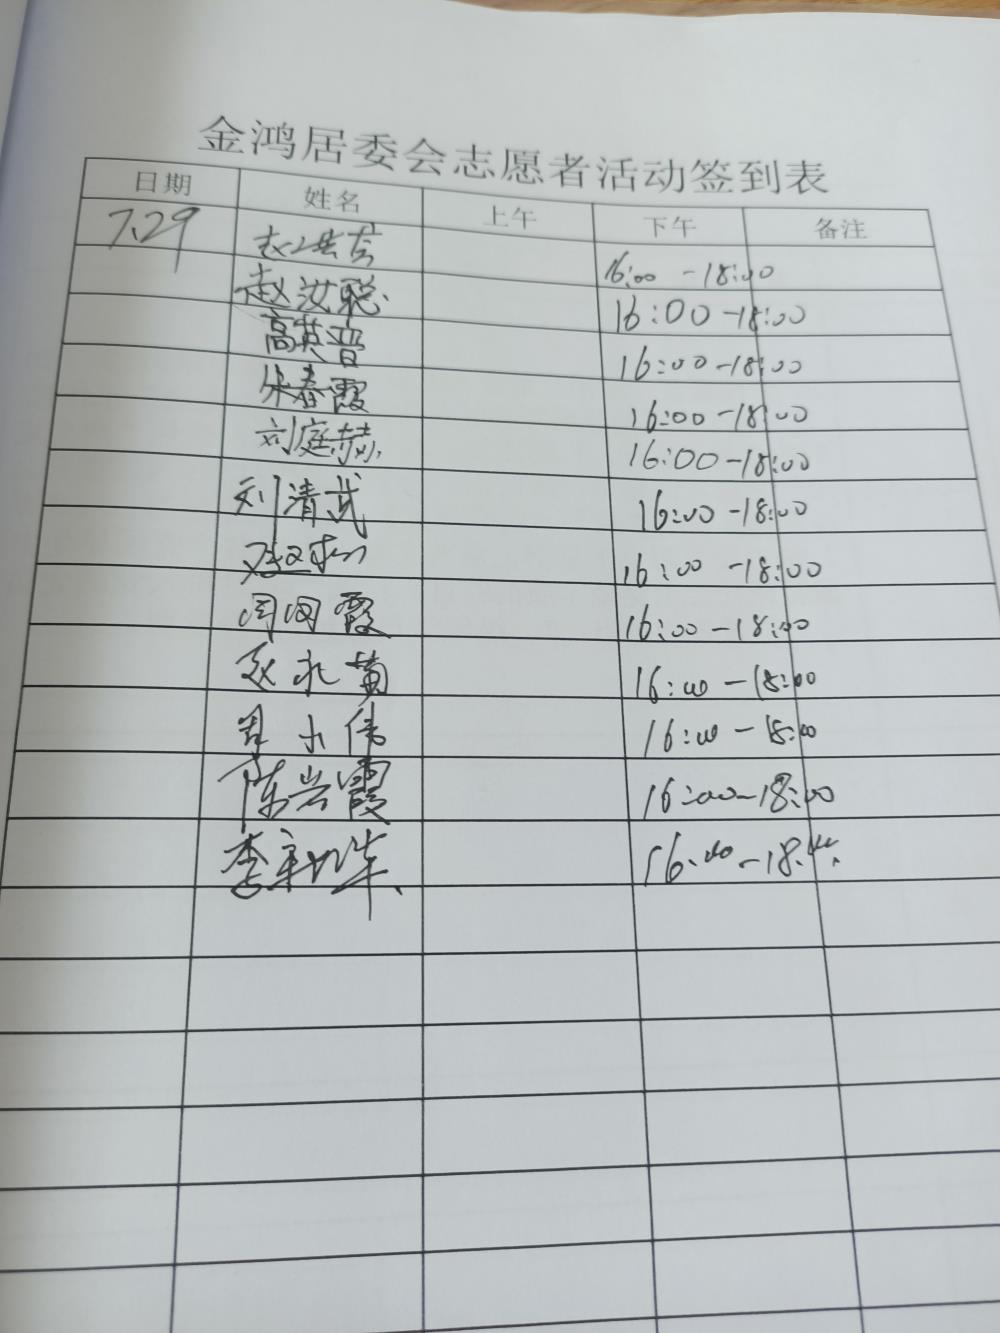 金鸿居委会志愿者活动签到表
日期 姓名 上午 下午 备注
7.29 赵洪芸 16:00-18:00
赵汝聪 16:00-18:00
高英晋 16:00-18:00
朱春霞 16:00-18:00
刘庭赫 16:00-18:00
刘清武 16:00-18:00
16:00-18:00
闫冈霞 16:00-18:00
赵永黄 16:00-18:00
周小伟 16:00-18:00
陈兴霞 16:00-18:00
李 16:00-18:00